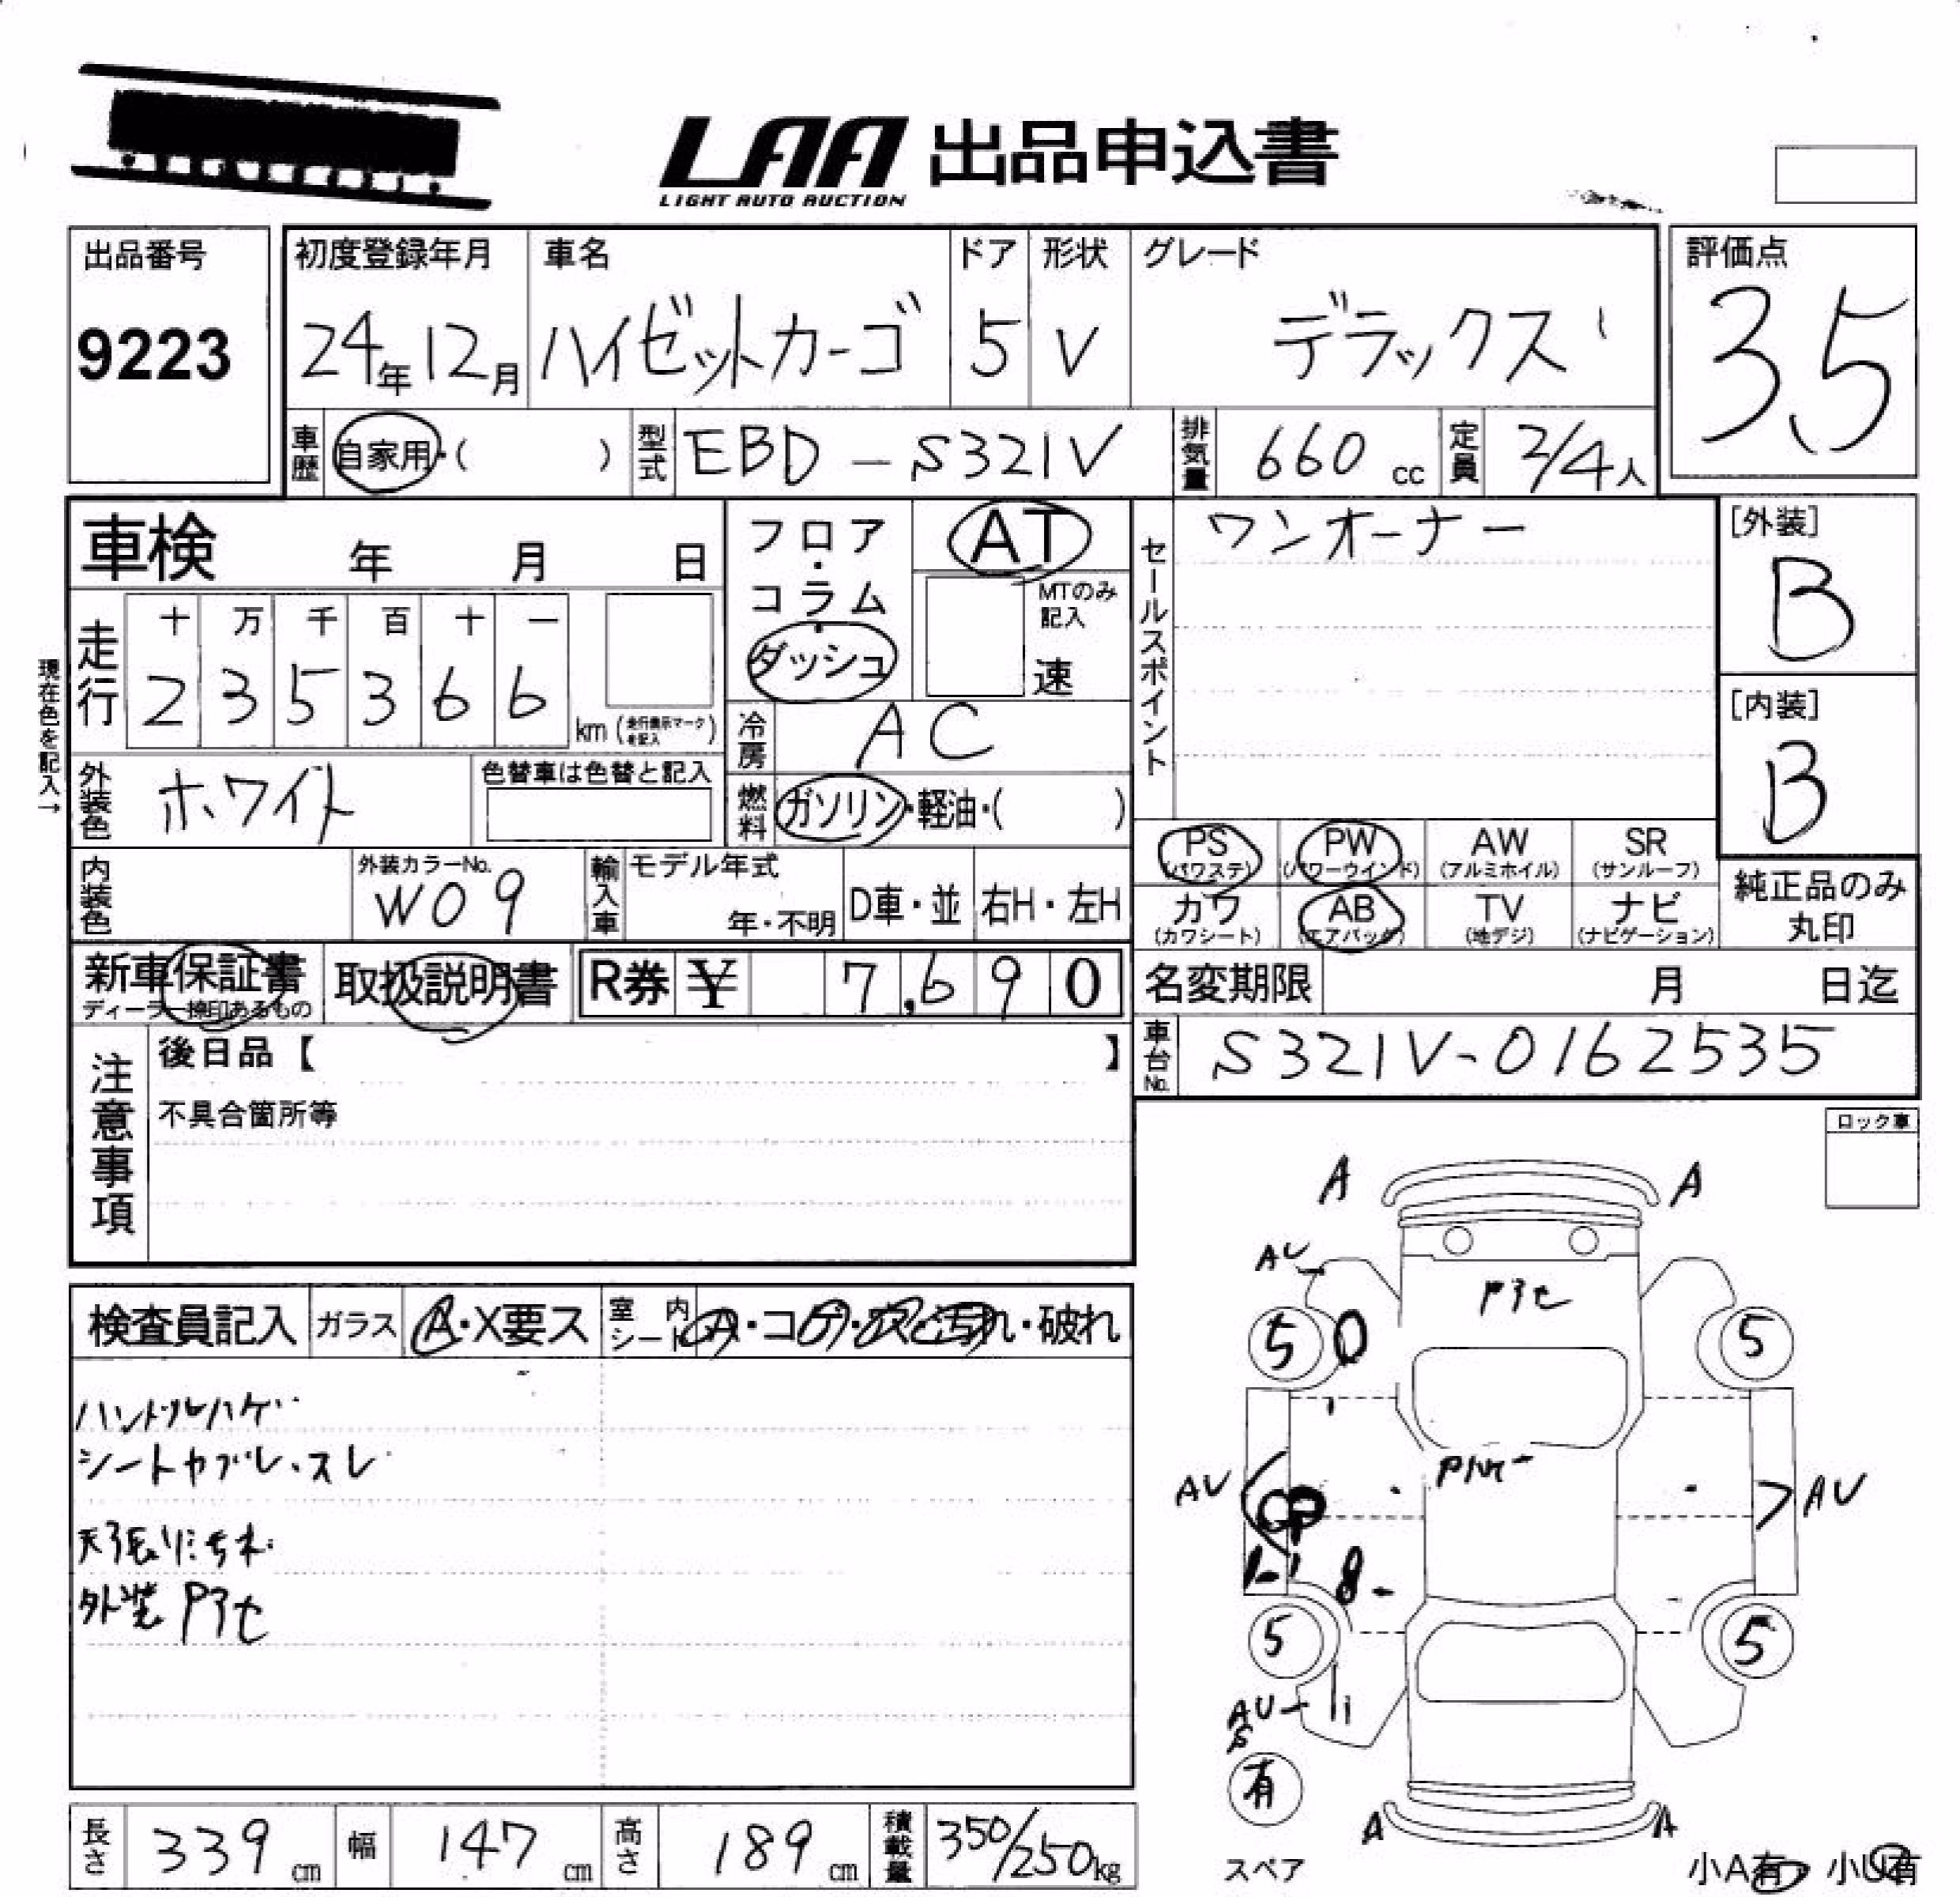 LAA 出品申込書
LIGHT AUTO AUCTION
出品番号
9223
初度登録年月
24年12月
車名
ハイゼットカーゴ
ドア
5
形状
V
グレード
デラックス
評価点
3.5
車歴 自家用・( )
型式 EBD-S321V
排気量 660cc
定員 2/4人
車検 年 月 日
フロア・コラム・ダッシュ
AT
MTのみ記入
速
セールスポイント
ワンオーナー
[外装]
B
[内装]
B
現在色を記入→
走行
十 万 千 百 十 一
2 3 5 3 6 6 km (走行表示マークを記入)
冷房 AC
外装色 ホワイト
色替車は色替と記入
燃料 ガソリン・軽油・( )
内装色
外装カラーNo.
W09
輸入車
モデル年式
年・不明
D車・並
右H・左H
PS (パワステ)
PW (パワーウインド)
AW (アルミホイル)
SR (サンルーフ)
カワ (カワシート)
AB (エアバッグ)
TV (地デジ)
ナビ (ナビゲーション)
純正品のみ丸印
新車保証書
ディーラー捺印あるもの
取扱説明書
R券 ¥ 7,690
名変期限 月 日迄
車台No. S321V-0162535
注意事項
後日品【 】
不具合箇所等
ロック車
検査員記入
ガラス A・X要ス
室内シート
汚れ・破れ
ハンドルハゲ
シートヤブレ・スレ
天張りよごれ
外装P アセ
A A
AU
Pアセ
5 5
AU AU
5 5
AU
S
有
スペア
A A
小A有・小U有
長さ 339cm
幅 147cm
高さ 189cm
積載量 350/250kg